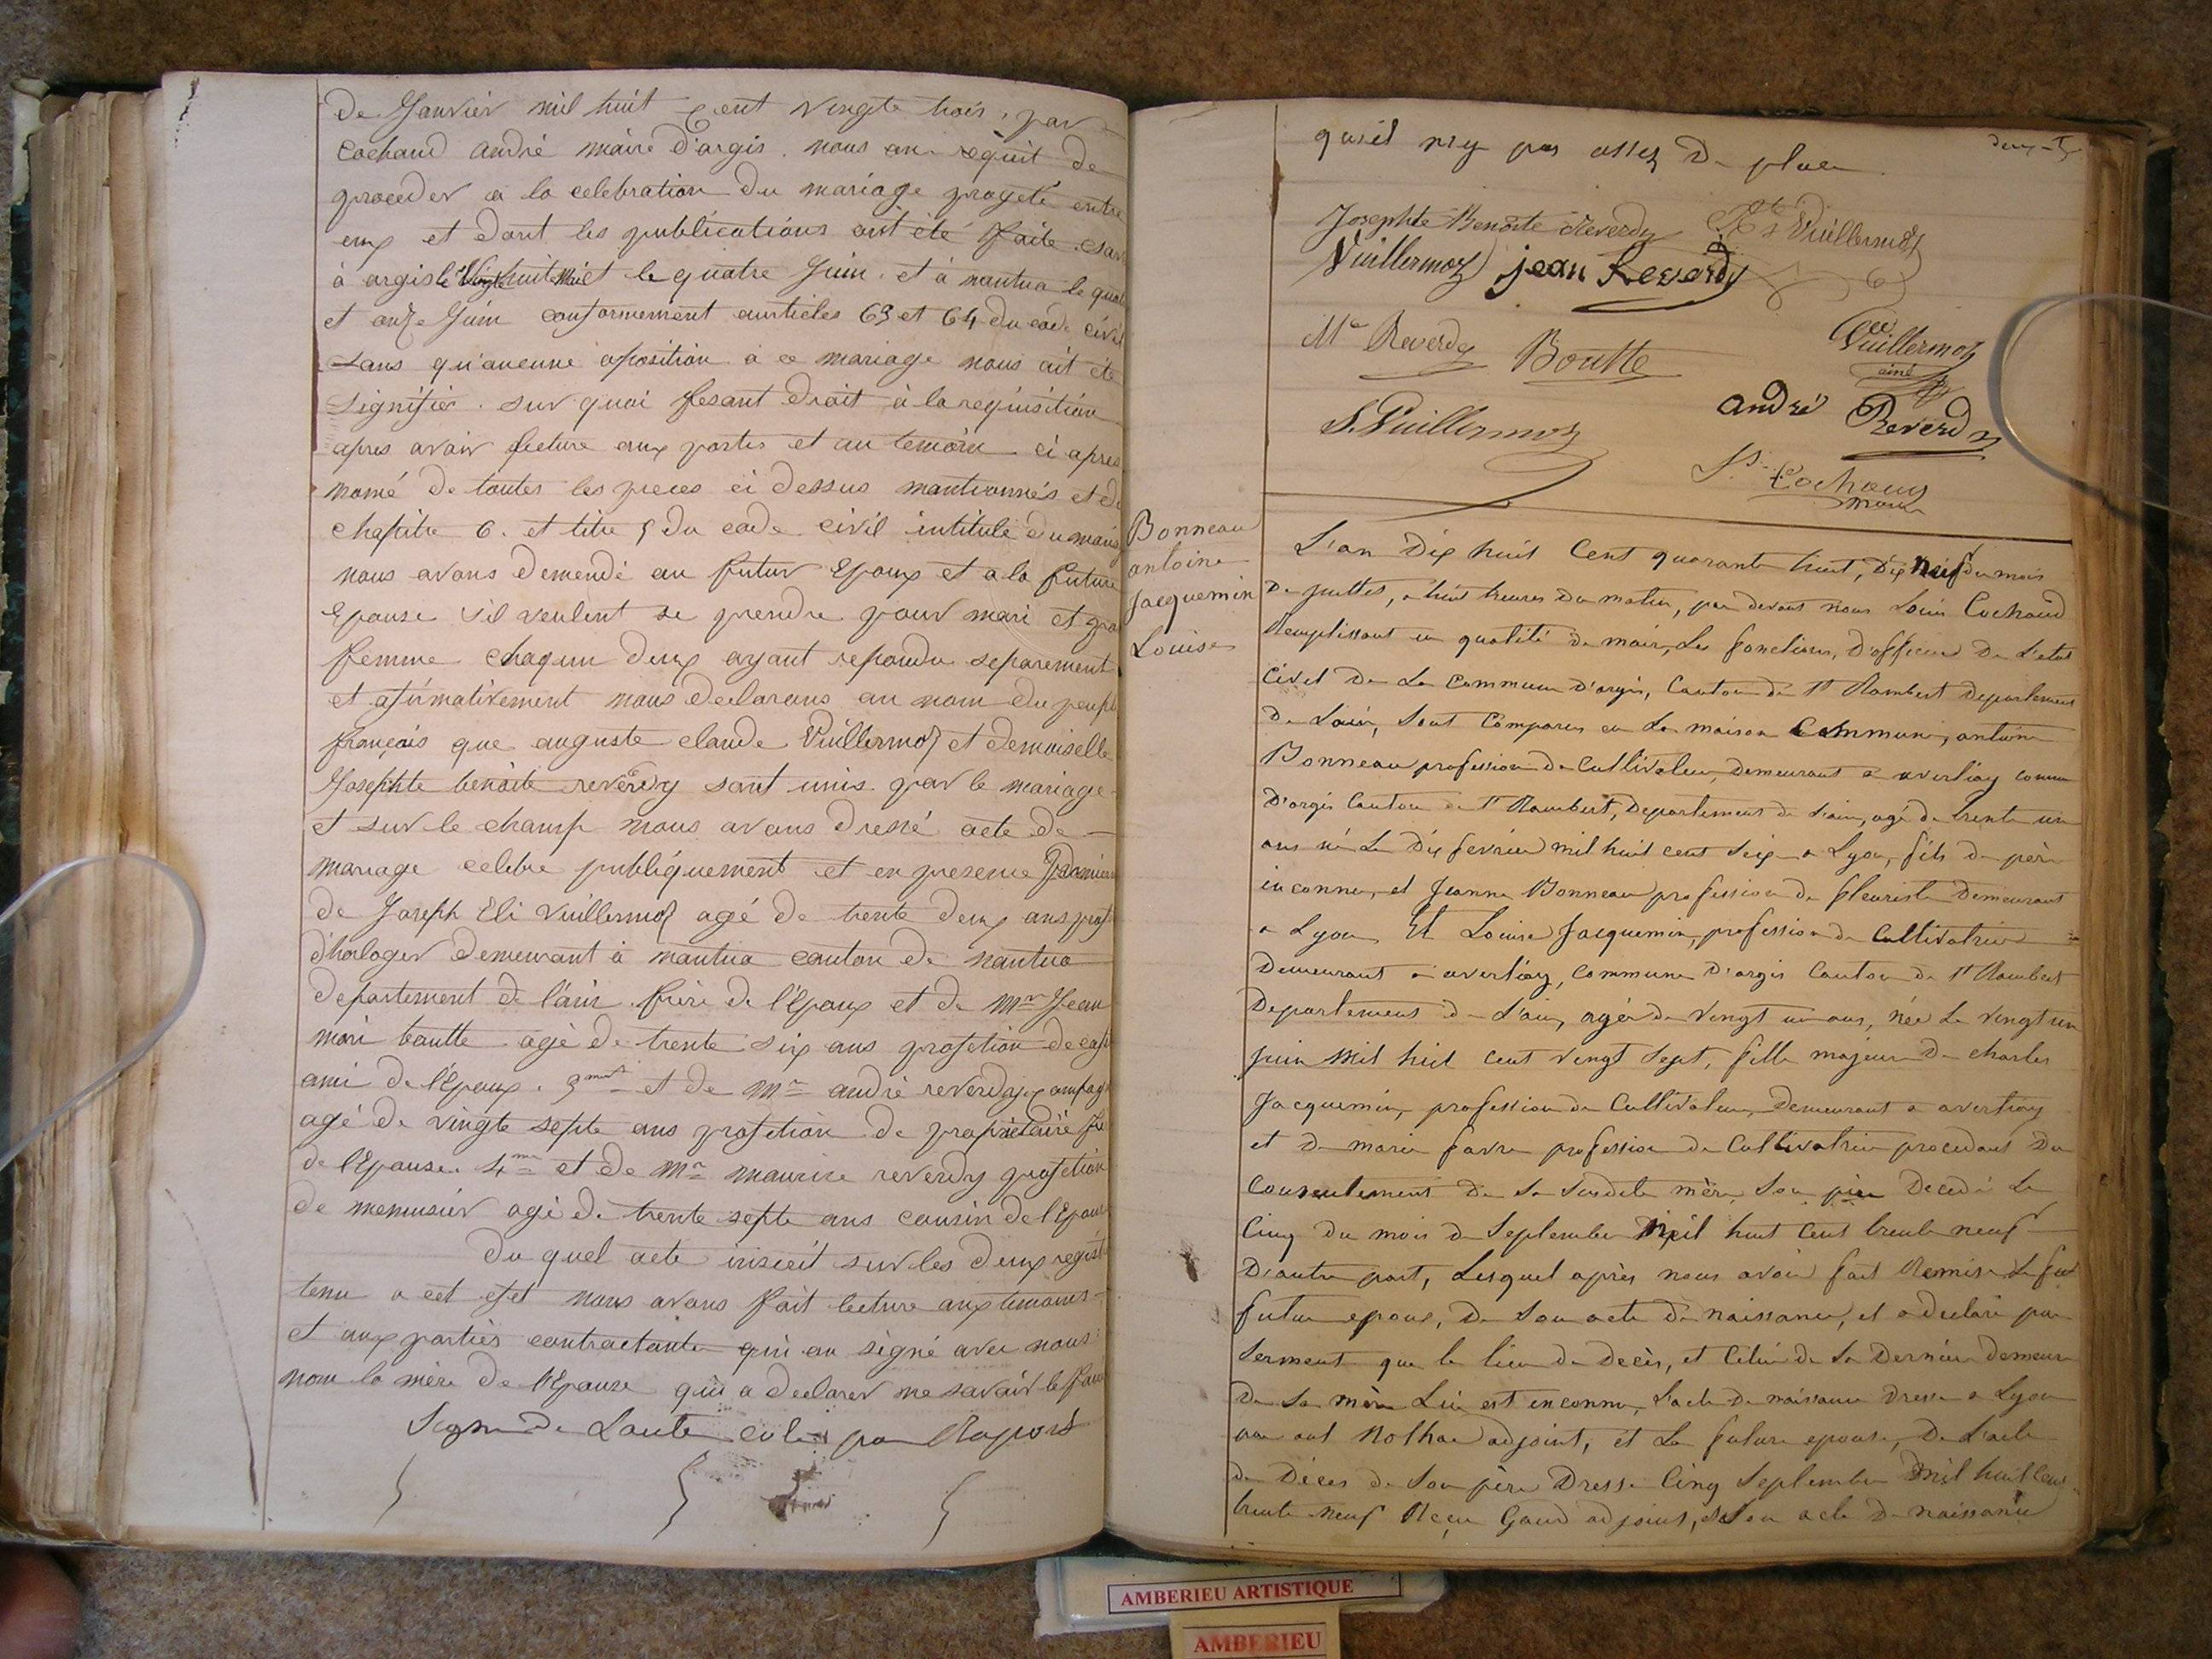 de Janvier mil huit Cent vingte trois, par
Cochaud andré maire d'argis. nous an requit de
proceder à la celebration du mariage progeté entre
eux et dont les publications ont été faite
à argis le Vingt huit Mai et le quatre Juin. et à nantua le
et onze Juin conformement aurticles 63 et 64 du code civil
sans qu'aucune oposition à ce mariage nous ait été
signifier. sur quoi fesant droit à la requisition
apres avoir lecture aux partes et au temoin ci apres
nomé de toutes les pieces ci dessus mantionnés et du
chapitre 6. et titre 5 du code civil intitulé du
nous avons demendé au futur Epoux et a la future
Epouse s'il veulent se prendre pour mari et
femme chaqun deux ayant repondu separement
et afirmativement nous declarons au nom du peuple
français que auguste claude Vuillermoz et demoiselle
Josephte benoite reverdy sont unis par le mariage
et sur le champ nous avons dressé acte de
mariage celebre publiquement et en presence
de Joseph Eli Vuillermoz agé de trente deux ans
d'horloger demeurant à nantua canton de nantua
departement de l'ain. frère de l'Epoux et de Mr Jean
mari boutte agé de trente six ans profetion de
ami de l'Epoux. 3me et de Mr andré reverdy
agé de vingte septe ans profetion de propriétaire
de l'Epouse. 4me et de Mr maurice reverdy profetion
de menuisier agé de trente septe ans cousin de l'Epouse
du quel acte inscrit sur les deux
tenu a cet efet nous avons fait lecture aux temoins
et aux parties contractante qui on signé avec nous
non la mère de l'Epouse qui a declarer ne savoir le faire
Signe de Lautre coté par Raport
qu'il n'y pas assez de place
Josephte Benoite Reverdy Vuillermoz
Vuillermoz jean Reverdy
Me Reverdy Boutte Vuillermoz
ainé
S. Vuillermoz andré Reverdy
Ls Cochaud
maire
Bonneau
antoine
Jacquemin
Louise
L'an dix huit Cent quarante huit, dix Neuf du mois
de juillet, a huit heures du matin, par devant nous Louis Cochaud
Remplissant en qualité de maire, les fonctions, d'officier de L'etat
Civil de La Commune d'argis, Canton de St Rambert Departement
de Lain, Sont Comparus en La maison Commune, antoine
Bonneau profession de Cultivateur, demeurant a averliay commune
D'argis Canton de St Rambert, Departement de Lain, agé de trente un
ans né Le dix fevrier mil huit cent Seize a Lyon, fils de père
inconnu, et Jeanne Bonneau profession de fleuriste Demeurant
a Lyon Et Louise Jacquemin, profession de Cultivatrice
Demeurant a averliay, Commune D'argis Canton de St Rambert
Departement de L'ain, agée de Vingt un ans, née Le vingt un
juin Mil huit Cent vingt Sept, fille majeure de charles
Jacquemin, profession de Cultivateur, Demeurant a averliay
et de marie favre profession de Cultivatrice procedant du
Consentement de Sa Sudite mère, Son père Décedé Le
Cinq du mois de Septembre Mil huit Cent trente neuf
D'autre part, Lesquel après nous avoir fait Remise Le
futur epoux, de Son acte de naissance, et a declaré par
Serment que le lieu de decès, et Celui de Sa Dernière demeure
de Sa mère Lui est inconnu, L'acte de naissance Dressé a Lyon
adjoint, et La future epouse, De L'acte
de Décès de Son père Dressé Cinq Septembre Mil huit Cent
trente neuf Reçu Gaud adjoint, et Son acte de naissance
AMBERIEU ARTISTIQUE
AMBERIEU